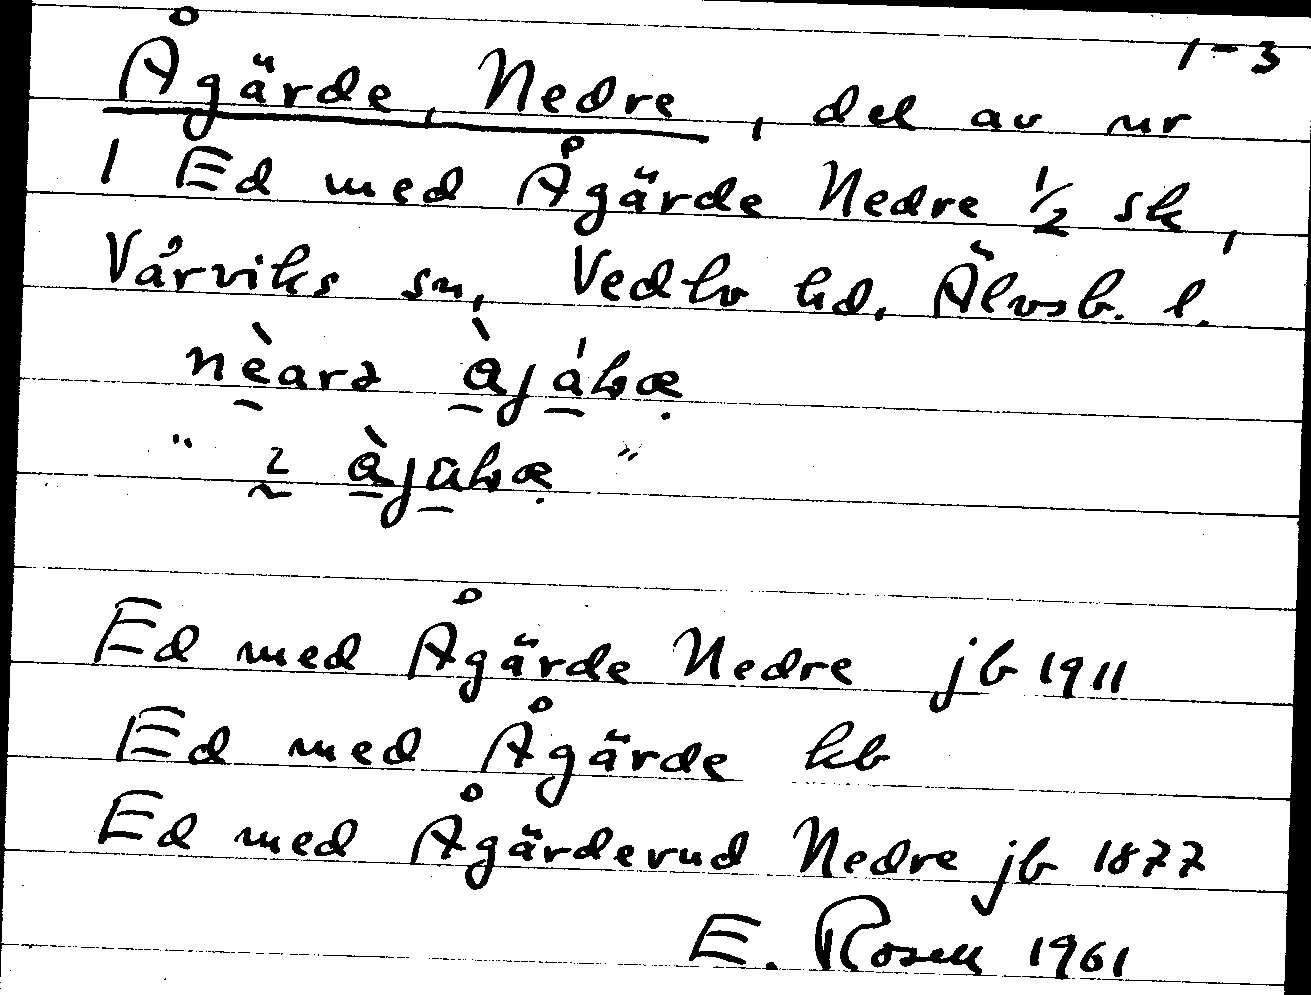 1-3
Ågärde, Nedre, del av nr
1 Ed med Ågärde Nedre 1/2 sk,
Vårviks sn, Vedbo hd, Älvsb. l.
Ed med Ågärde Nedre jb 1911
Ed med Ågärde kb
Ed med Ågärderud Nedre jb 1877
E. Rosell 1961